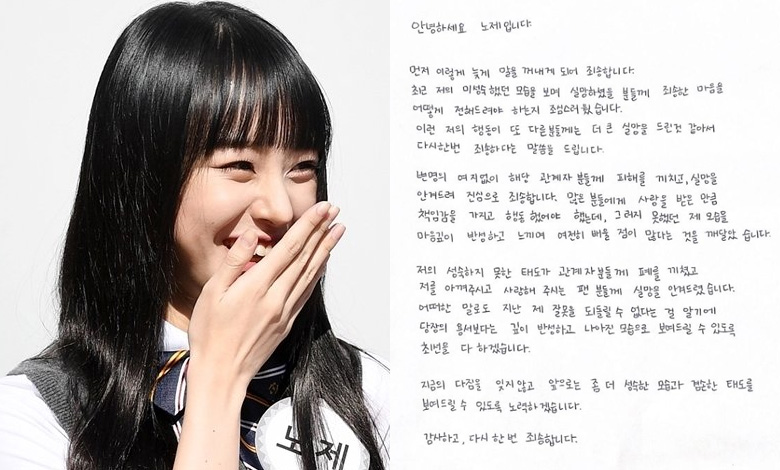 노제
안녕하세요 노제입니다.
먼저 이렇게 늦게 말을 꺼내게 되어 죄송합니다.
최근 저의 미성숙했던 모습을 보며 실망하셨을 분들께 죄송한 마음을
어떻게 전해드려야 하는지 조심스러웠습니다.
이런 저의 행동이 또 다른분들께는 더 큰 실망을 드린것 같아서
다시한번 죄송하다는 말씀을 드립니다.
변명의 여지없이 해당 관계자분들께 피해를 끼치고, 실망을
안겨드려 진심으로 죄송합니다. 많은 분들에게 사랑을 받은 만큼
책임감을 가지고 행동했어야 했는데, 그러지 못했던 제 모습을
마음깊이 반성하고 느끼며 여전히 배울 점이 많다는 것을 깨달았습니다.
저의 성숙하지 못한 태도가 관계자분들께 폐를 끼쳤고
저를 아껴주시고 사랑해 주시는 팬 분들께 실망을 안겨드렸습니다.
어떠한 말로도 지난 제 잘못을 되돌릴 수 없다는 걸 알기에
당장의 용서보다는 깊이 반성하고 나아진 모습으로 보여드릴 수 있도록
최선을 다 하겠습니다.
지금의 다짐을 잊지않고 앞으로는 좀 더 성숙한 모습과 겸손한 태도를
보여드릴 수 있도록 노력하겠습니다.
감사하고, 다시 한 번 죄송합니다.